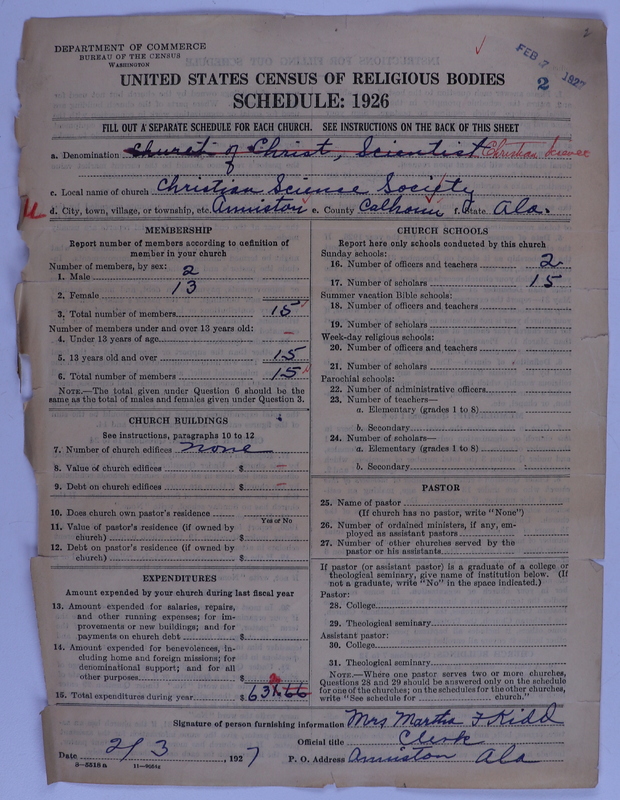 2
FEB 7 1927
2
DEPARTMENT OF COMMERCE
BUREAU OF THE CENSUS
WASHINGTON
UNITED STATES CENSUS OF RELIGIOUS BODIES
SCHEDULE: 1926
FILL OUT A SEPARATE SCHEDULE FOR EACH CHURCH. SEE INSTRUCTIONS ON THE BACK OF THIS SHEET
a. Denomination Church of Christ, Scientist Christian Science
c. Local name of church Christian Science Society
d. City, town, village, or township, etc. Anniston e. County Calhoun f. State Ala.
MEMBERSHIP
Report number of members according to definition of
member in your church
Number of members, by sex:
1. Male 2
2. Female 13
3. Total number of members 15
Number of members under and over 13 years old:
4. Under 13 years of age –
5. 13 years old and over 15
6. Total number of members 15
NOTE.—The total given under Question 6 should be the
same as the total of males and females given under Question 3.
CHURCH BUILDINGS
See instructions, paragraphs 10 to 12
7. Number of church edifices none
8. Value of church edifices $ –
9. Debt on church edifices $ –
10. Does church own pastor's residence
Yes or No
11. Value of pastor's residence (if owned by
church) $
12. Debt on pastor's residence (if owned by
church) $
EXPENDITURES
Amount expended by your church during last fiscal year
13. Amount expended for salaries, repairs,
and other running expenses; for im-
provements or new buildings; and for
payments on church debt $
14. Amount expended for benevolences, in-
cluding home and foreign missions; for
denominational support; and for all
other purposes $
15. Total expenditures during year $
CHURCH SCHOOLS
Report here only schools conducted by this church
Sunday schools:
16. Number of officers and teachers 2
17. Number of scholars 15
Summer vacation Bible schools:
18. Number of officers and teachers
19. Number of scholars
Week-day religious schools:
20. Number of officers and teachers
21. Number of scholars
Parochial schools:
22. Number of administrative officers
23. Number of teachers—
a. Elementary (grades 1 to 8)
b. Secondary
24. Number of scholars—
a. Elementary (grades 1 to 8)
b. Secondary
PASTOR
25. Name of pastor
(If church has no pastor, write "None")
26. Number of ordained ministers, if any, em-
ployed as assistant pastors
27. Number of other churches served by the
pastor or his assistants
If pastor (or assistant pastor) is a graduate of a college or
theological seminary, give name of institution below. (If
not a graduate, write "No" in the space indicated.)
Pastor:
28. College
29. Theological seminary
Assistant pastor:
30. College
31. Theological seminary
NOTE.—Where one pastor serves two or more churches,
Questions 28 and 29 should be answered only on the schedule
for one of the churches; on the schedules for the other churches,
write "See schedule for church."
Signature of person furnishing information Mrs Martha F Kidd
Official title Clerk
Date 2/3, 1927 P. O. Address Anniston Ala